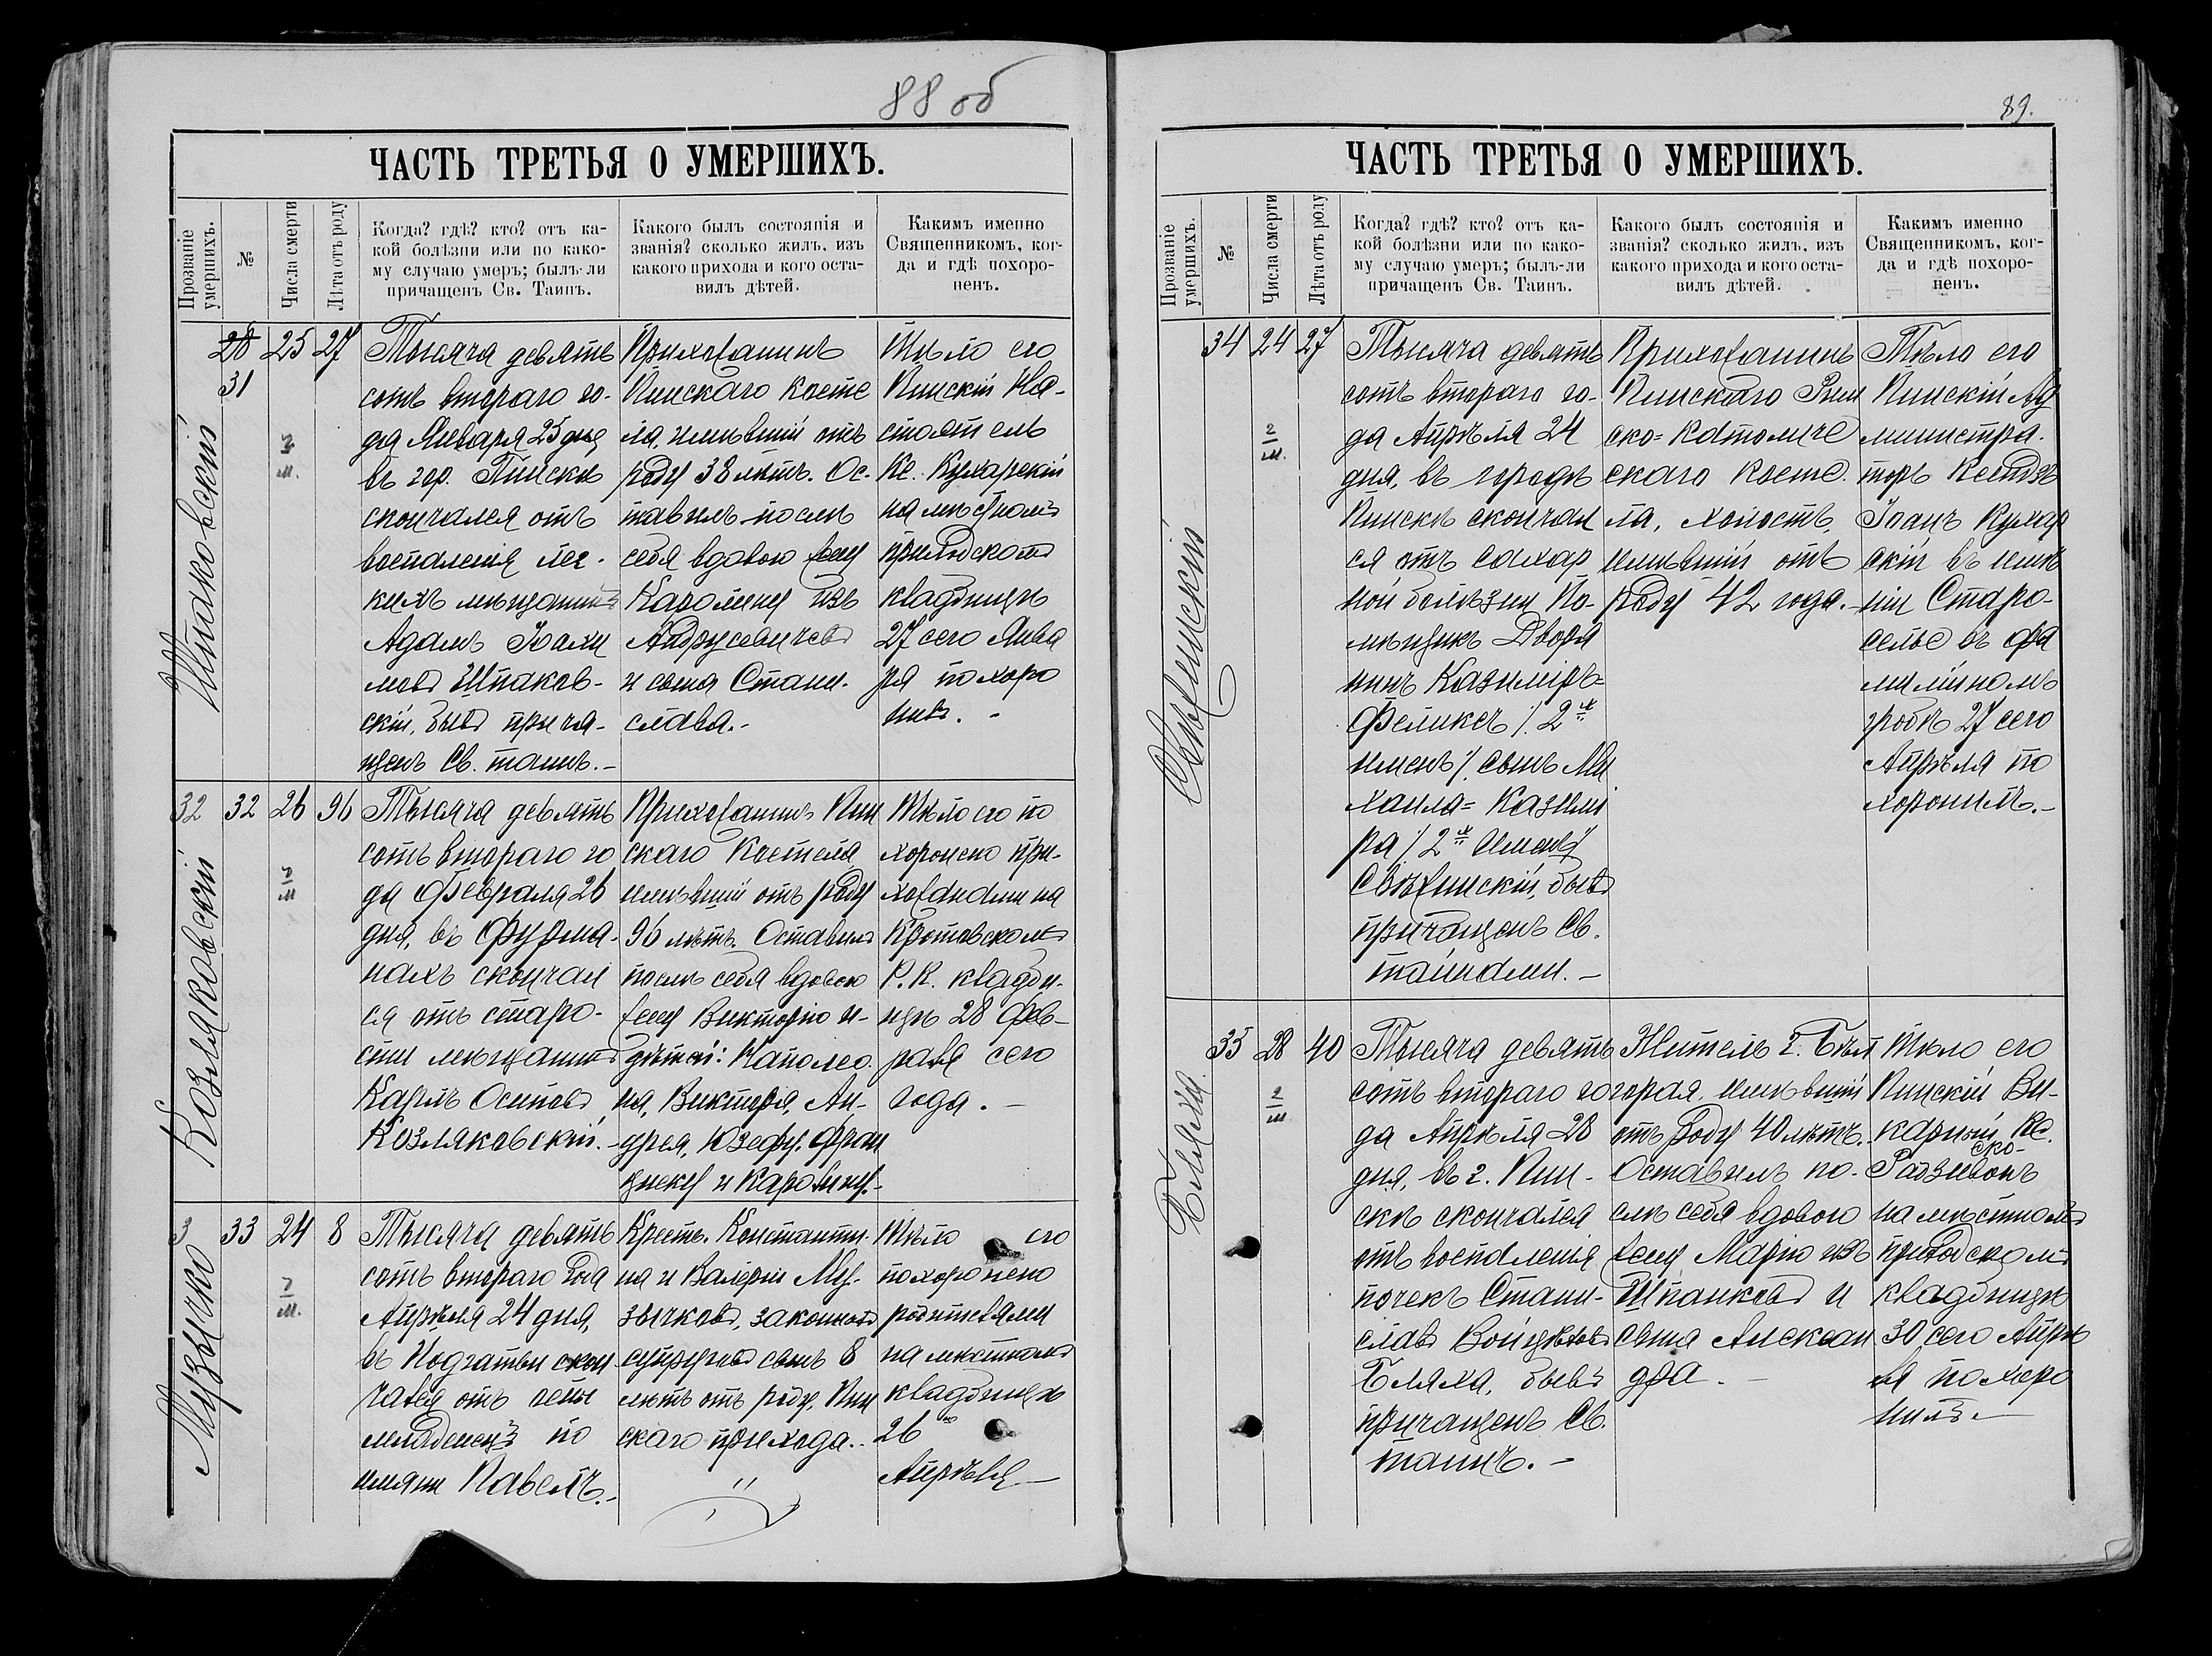 88 об
ЧАСТЬ ТРЕТЬЯ О УМЕРШИХЪ.
Прозваніе умершихъ.
№
Числа смерти
Лѣта отъ роду
Когда? гдѣ? кто? отъ ка-
кой болѣзни или по како-
му случаю умеръ; былъ-ли
причащенъ Св. Таинъ.
Какого былъ состоянія и
званія? сколько жилъ, изъ
какого прихода и кого оста-
вилъ дѣтей.
Какимъ именно
Священникомъ, ког-
да и гдѣ похоро-
ненъ.
Шпаковскій
28
31
25
27
Тысяча девять
сотъ втораго го-
да Января 25 дня
въ гор. Пинскѣ
скончался отъ
воспаленія лег-
кихъ мѣщанинъ
Адамъ Іоахи
мовъ Шпаков-
скій, бывъ прича-
щенъ Св. таинъ.-
Прихожанинъ
Пинскаго косте
ла, имѣвшій отъ
роду 38 лѣтъ. Ос-
тавилъ послѣ
себя вдовою жену
Каролину изъ
Андрусевичевъ
и сына Стани-
слава.-
Тѣло его
Пинскій На-
стоятель
Кс. Кухарскій
на мѣстномъ
приходскомъ
кладбищѣ
27 сего Янва
ря похоро
нилъ.-
32
Козляковскій
32
26
96
Тысяча девять
сотъ втораго го
да Февраля 26
дня, въ Фурма-
нахъ скончал
ся отъ старо-
сти мѣщанинъ
Карлъ Осиповъ
Козляковскій.-
Прихожанинъ Пин
скаго костела
имѣвшій отъ роду
96 лѣтъ. Оставилъ
послѣ себя вдовою
жену Викторію и-
дѣтей: Наполео-
на, Виктора, Ан-
дрея, Юзефу, Фран
циску и Каролину.-
Тѣло его по
хоронено при-
хожанами на
Кротовскомъ
Р. К. кладби-
щѣ 28 Фев-
раля сего
года.-
3
Музычко
33
24
8
Тысяча девять
сотъ втораго года
Апрѣля 24 дня,
въ Подгатьи скон
чался отъ
младенецъ по
имяни Павелъ.-
Крестъ. Константи-
на и Валеріи Му-
зычковъ, законныхъ
супруговъ сынъ 8
лѣтъ отъ роду, Пин
скаго прихода..
Тѣло его
похоронено
родителями
на мѣстномъ
кладбищѣ
26
Апрѣля.-
89.
ЧАСТЬ ТРЕТЬЯ О УМЕРШИХЪ.
Прозваніе умершихъ.
№
Числа смерти
Лѣта отъ роду
Когда? гдѣ? кто? отъ ка-
кой болѣзни или по како-
му случаю умеръ; былъ-ли
причащенъ Св. Таинъ.
Какого былъ состоянія и
званія? сколько жилъ, изъ
какого прихода и кого оста-
вилъ дѣтей.
Какимъ именно
Священникомъ, ког-
да и гдѣ похоро-
ненъ.
Свѣжинскій
34
24
27
Тысяча девять
сотъ втораго го-
да Апрѣля 24
дня, въ городѣ
Пинскѣ скончал
ся отъ сахар
ной болѣзни По-
мѣщикъ Дворя
нинъ Казиміръ=
Феликсъ /2хъ
именъ/ сынъ Ми
хаила= Казими
ра /2хъ именъ/
Свѣжинскій, бывъ
причащенъ Св.
тайнами.-
Прихожанинъ
Пинскаго Рим
ско=Католиче
скаго косте-
ла, холостъ,
имѣвшій отъ
роду 42 года.-
Тѣло его
Пинскій Ад
министра-
торъ Ксендзъ
Іоанъ Кухар
скій въ имѣ
ніи Старо-
селье въ фа
мильномъ
гробѣ 27 сего
Апрѣля по
хоронилъ.-
Бляха.
35
28
40
Тысяча девять
сотъ втораго го
да Апрѣля 28
дня, въ г. Пин-
скѣ скончался
отъ воспаленія
почекъ Стани-
славъ Войцѣховъ
Бляха, бывъ
причащенъ Св.
таинъ.-
Житель г. Бѣл
горая, имѣвшій
отъ роду 40 лѣтъ.
Оставилъ по-
слѣ себя вдовою
жену Марію изъ
Шпаковъ и
сына Алексан
дра.-
Тѣло его
Пинскій Ви-
карный Кс.
Радзивонъ
ско-
на мѣстномъ
приходскомъ
кладбищѣ
30 сего Апрѣ
ля похоро
нилъ.-